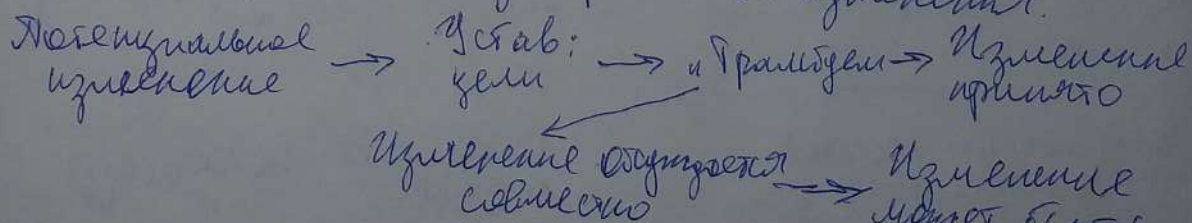 изменения.
Потенциальное
изменение → Устав:
цели → и Трамбуем → Изменение
принято
Изменение обсуждается
совместно → Изменение
может быть